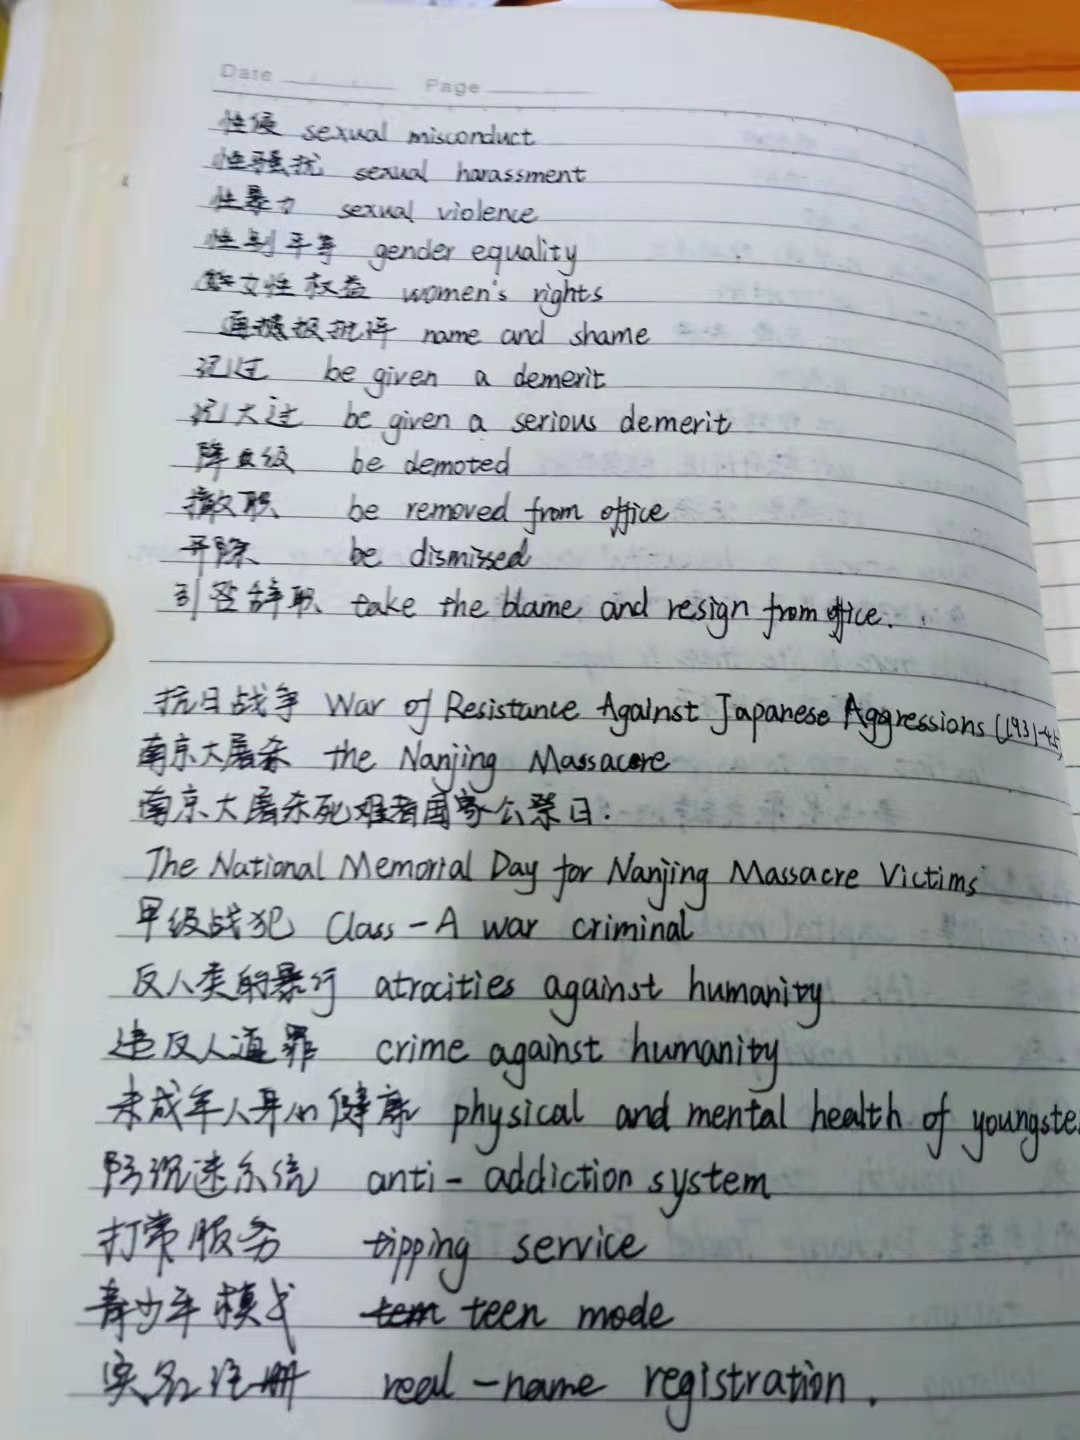 Date Page
性侵 sexual misconduct
性骚扰 sexual harassment
性暴力 sexual violence
性别平等 gender equality
女性权益 women's rights
通报批评 name and shame
记过 be given a demerit
记大过 be given a serious demerit
降级 be demoted
撤职 be removed from office
开除 be dismissed
引咎辞职 take the blame and resign from office.
抗日战争 War of Resistance Against Japanese Aggressions (1931-45)
南京大屠杀 the Nanjing Massacre
南京大屠杀死难者国家公祭日.
The National Memorial Day for Nanjing Massacre Victims
甲级战犯 Class-A war criminal
反人类的暴行 atrocities against humanity
违反人道罪 crime against humanity
未成年人身心健康 physical and mental health of youngste
防沉迷系统 anti-addiction system
打赏服务 tipping service
青少年模式 teen mode
实名注册 real-name registration.